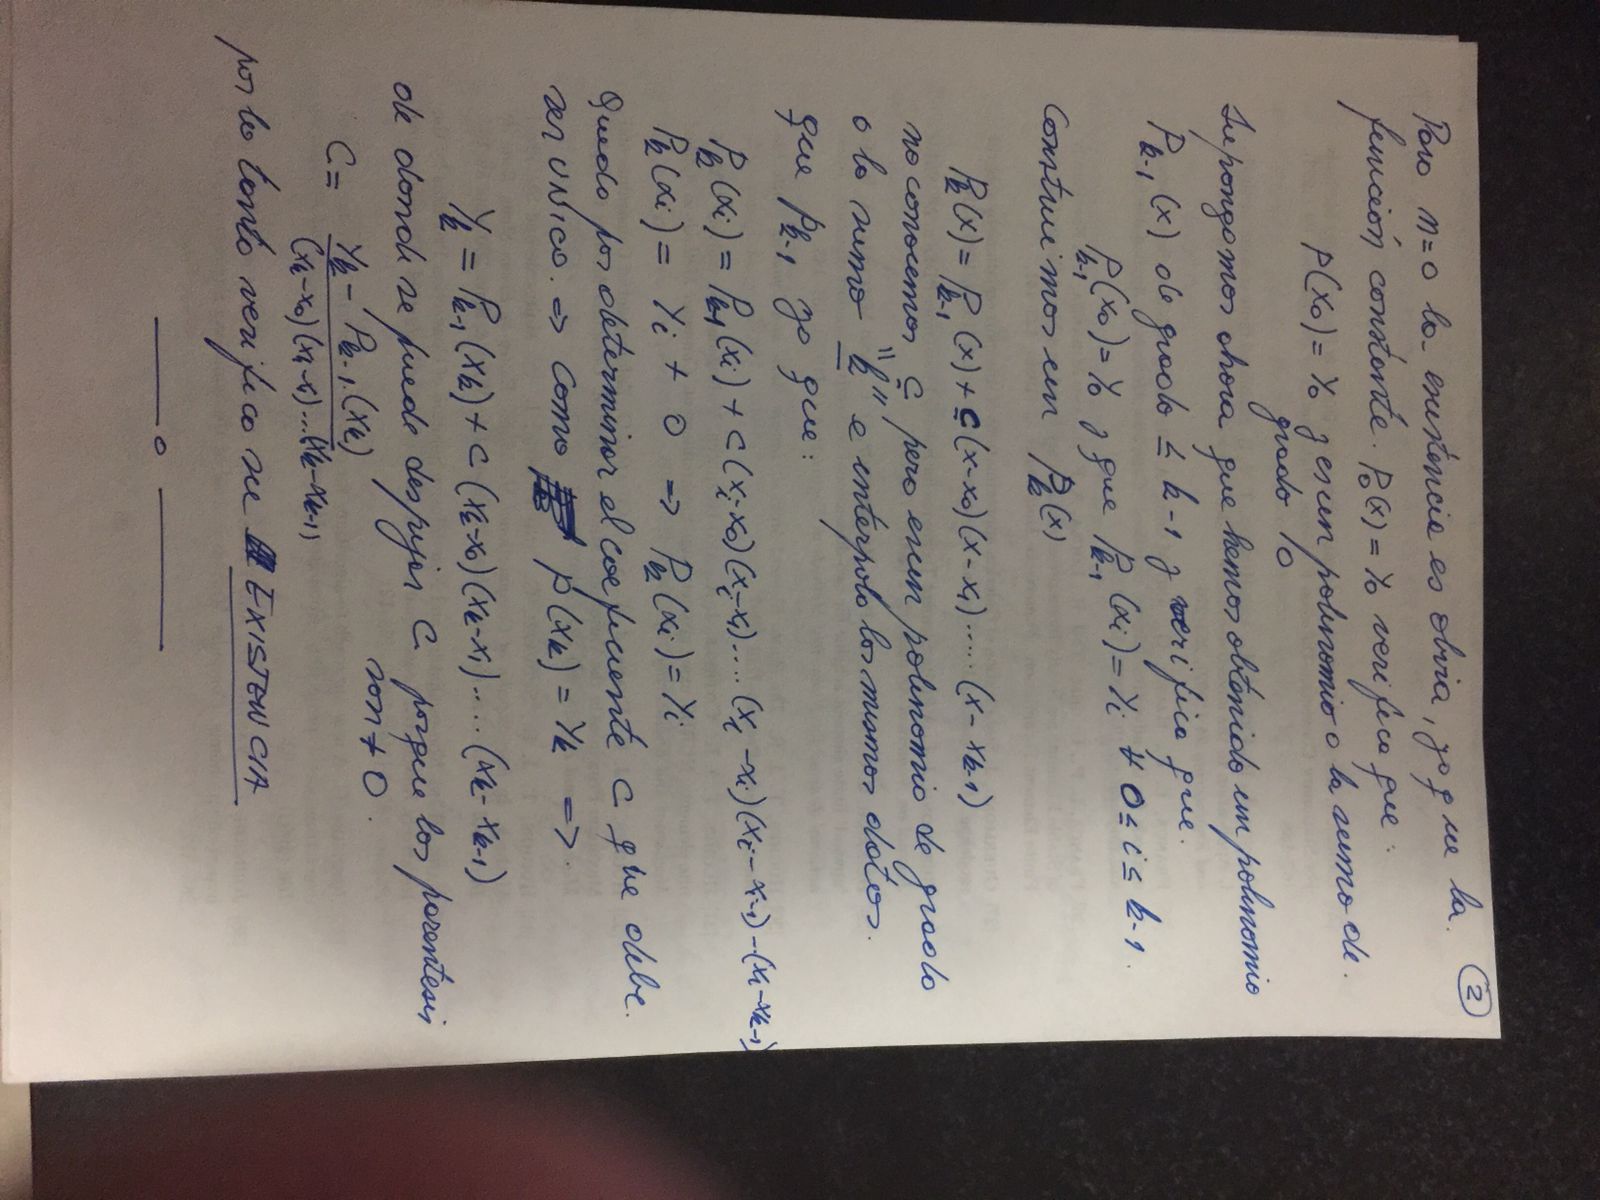 2
Para n=0 la existencia es obvia, ya que la.
función constante. P₀(x) = Y₀ verifica que:
P(x₀) = Y₀ y es un polinomio a la sumo de.
grado 0
Supongamos ahora que hemos obtenido un polinomio
Pₖ₋₁(x) de grado ≤ k-1 y verifica que.
Pₖ₋₁(x₀) = Y₀ y que Pₖ₋₁(xᵢ) = Yᵢ ∀ 0 ≤ i ≤ k-1.
Construimos un Pₖ(x)
Pₖ(x) = Pₖ₋₁(x) + c(x-x₀)(x-x₁).....(x-xₖ₋₁)
no conocemos c pero es un polinomio de grado
a lo sumo "k" e interpola los mismos datos.
que pₖ₋₁ ya que:
Pₖ(xᵢ) = Pₖ₋₁(xᵢ) + c(xᵢ-x₀)(xᵢ-x₁)....(xᵢ-xᵢ)(xᵢ-xᵢ₋₁)--(xᵢ-xₖ₋₁)
Pₖ(xᵢ) = Yᵢ + 0 => Pₖ(xᵢ) = Yᵢ
Queda por determinar el coeficiente C que debe.
ser UNICO. => Como p(xₖ) = Yₖ =>.
Yₖ = Pₖ₋₁(xₖ) + C(xₖ-x₀)(xₖ-x₁).....(xₖ-xₖ₋₁)
de donde se puede despejar C porque los parentesis
son ≠ 0.
C = Yₖ - Pₖ₋₁(xₖ)
(xₖ-x₀)(xₖ-x₁)...(xₖ-xₖ₋₁)
por lo tanto verifico su EXISTENCIA